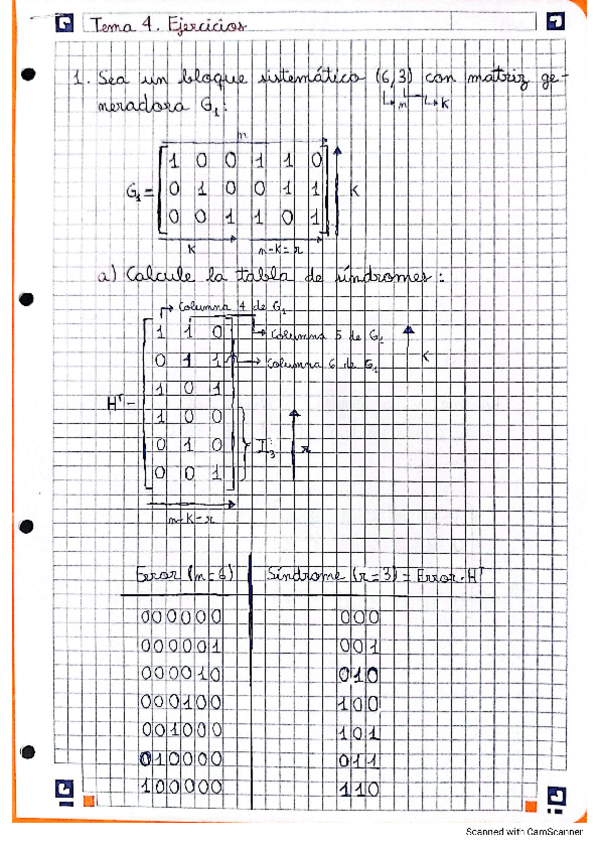 Tema 4. Ejercicios
1. Sea un bloque sistemático (6,3) con matriz ge-
neradora G₁:
↳n ↳k
n
G₁ =
1 0 0 1 1 0
0 1 0 0 1 1
0 0 1 1 0 1
k
k
n-k=r
a) Calcule la tabla de síndromes:
Columna 4 de G₁
Columna 5 de G₁
Columna 6 de G₁
Hᵀ =
1 1 0
0 1 1
1 0 1
1 0 0
0 1 0
0 0 1
k
I₃
r
n-k=r
Error (n=6) Síndrome (r=3) = Error·Hᵀ
000000 000
000001 001
000010 010
000100 100
001000 101
010000 011
100000 110
Scanned with CamScanner